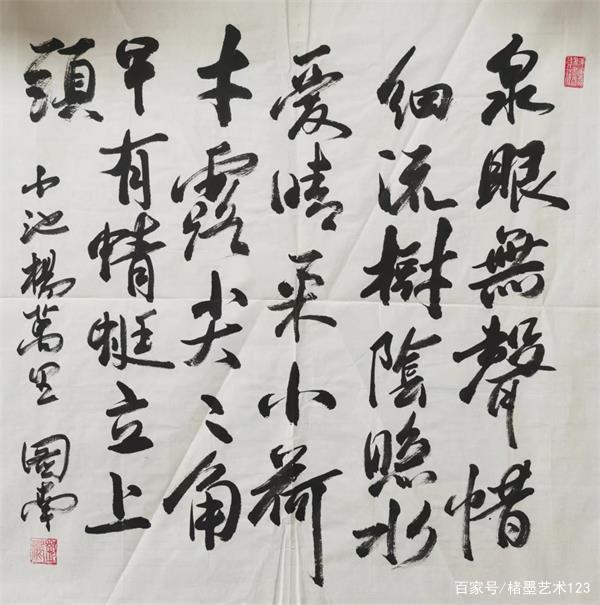 泉眼無聲惜
細流樹陰照水
愛晴柔小荷
才露尖々角
早有蜻蜓立上
頭
小池楊萬里 圖南
百家号/楮墨艺术123